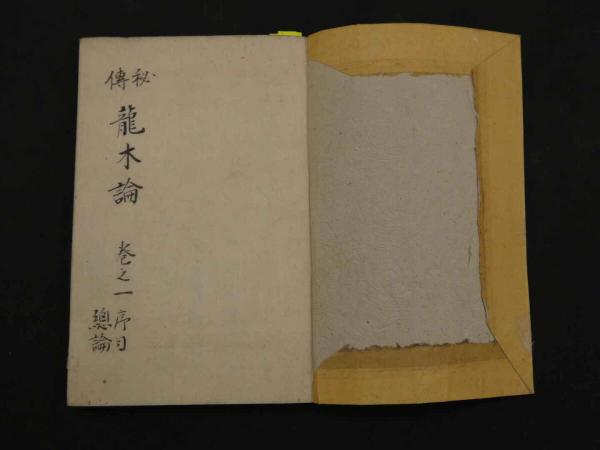 秘傳
龍木論
卷之一
序目
總論